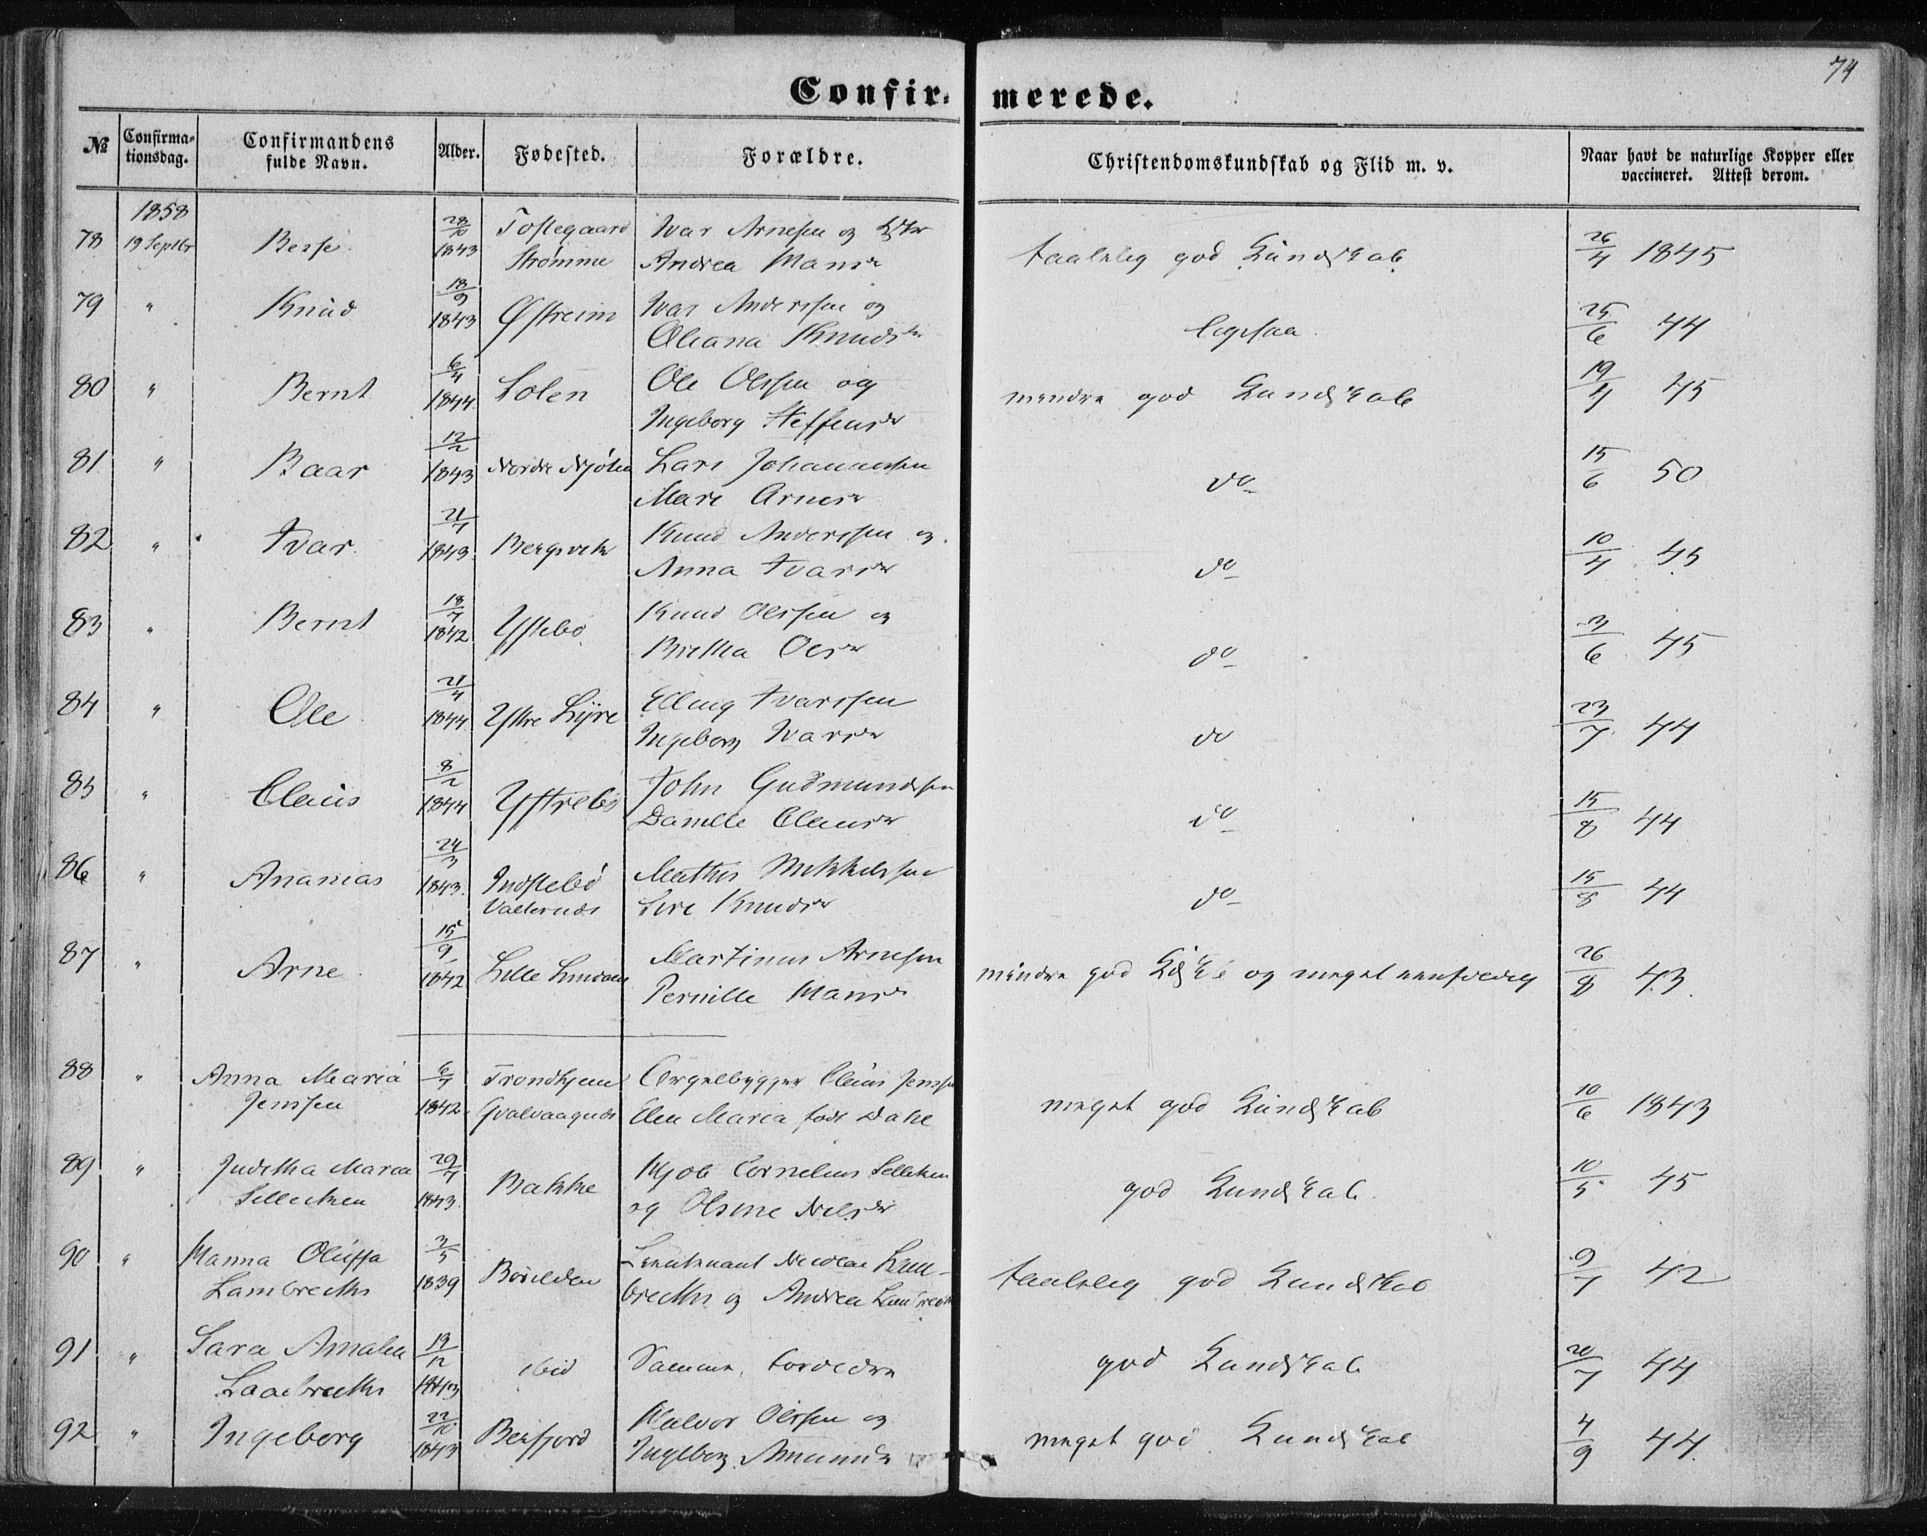 74
Confirmerede.
№ Confirmationsdag. Confirmandens fulde Navn. Alder. Fødested. Forældre. Christendomskundskab og Flid m. v. Naar havt de naturlige Kopper eller vaccineret. Attest derom.
1858
78 19 Septbr 28/10 1843 Strømme Ivar Arnesen og Andrea Hansdr taalelig god Kundskab 26/4 1845
79 " Knud 18/9 1843 Østreim Ivar Anderssen og Oleana Knudsdr ligesaa 25/6 44
80 " Bernt 6/4 1844 Solen Ole Olssen og Ingeborg Steffensdr mindre god Kundskab 19/4 45
81 " Baar 12/2 1843 Nordre Lars Johannessen Mari Arnesdr do 15/6 50
82 " Ivar 21/7 1843 Bergsvik Knud Anderssen og Anna Ivarsdr do 10/4 45
83 " Bernt 18/7 1842 Ystebø Knud Olssen og Olsdr do 3/6 45
84 " Ole 21/4 1844 Ystre Elling Ivarssen Ingeborg Ivarsdr do 23/7 44
85 " Claus 8/2 1844 Ystrebø John Gudmundsen Clausdr do 15/8 44
86 " Ananias 24/3 1843 Indstebø Mathis Mikkelsen Knudsdr do 15/8 44
87 " Arne 15/9 1842 Lille Martinus Arnesen Pernille Hansdr mindre god og meget 26/8 43
88 " Anna Maria Jenssen 6/7 1842 Trondhjem Orgelbygger Claus Jenssen Elen Maria født Dahl meget god Kundskab 10/6 1843
89 " Juditha Maria 29/7 1843 Bakke Cornelius og Olsine Nilsdr god Kundskab 10/5 45
90 " Hanna Oluffa Lambrechts 3/5 1839 Lieutenant Nicolai Lambrechts og Andrea Lambrechts taalelig god Kundskab 9/7 42
91 " Sara Amalia Lambrechts 19/12 1843 ibid Samme Forældre god Kundskab 20/7 44
92 " Ingeborg 22/10 1843 Halvor Olssen og Ingeborg meget god Kundskab 4/9 44